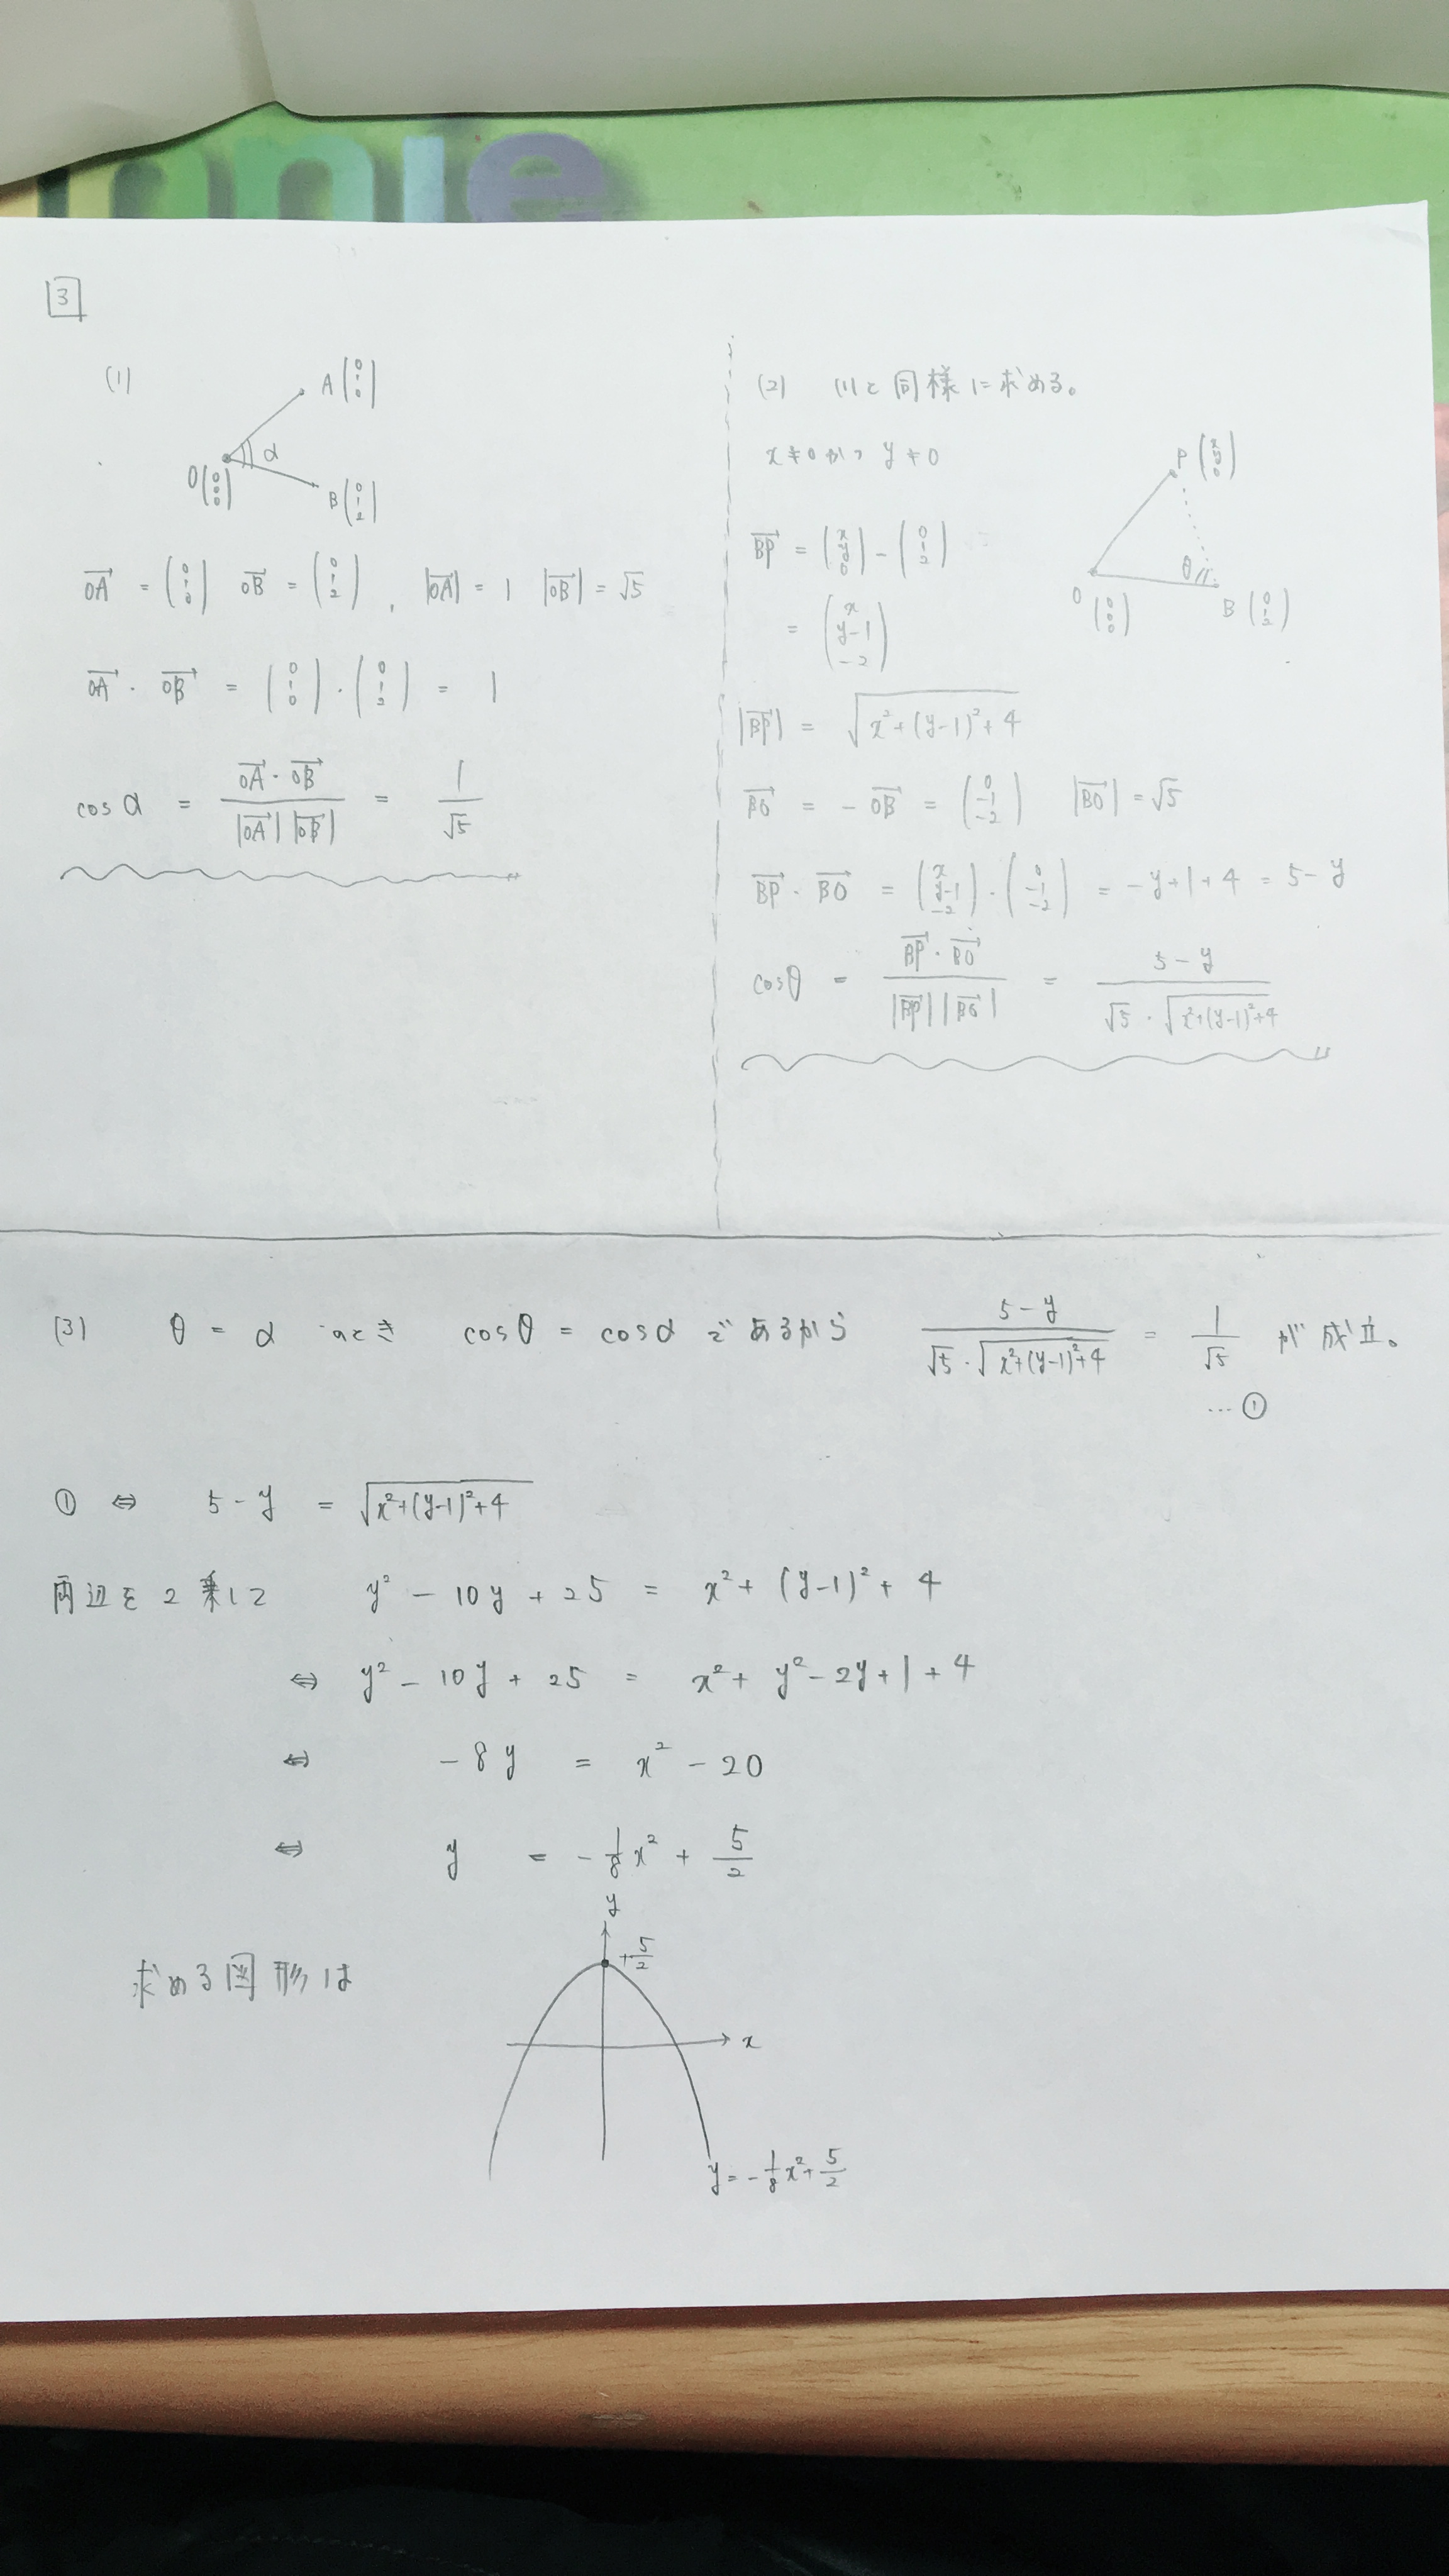 onie
3
(1)
A (0 1 0)
α
O (0 0 0)
B (0 1 2)
→OA = (0 1 0) →OB = (0 1 2) , |→OA| = 1 |→OB| = √5
→OA · →OB = (0 1 0) · (0 1 2) = 1
cos α = →OA · →OB / |→OA| |→OB| = 1/√5
(2) (1)と同様に求める。
x≠0かつ y≠0
P (x y 0)
θ
O (0 0 0)
B (0 1 2)
→BP = (x y 0) - (0 1 2)
= (x y-1 -2)
|→BP| = √(x²+(y-1)²+4)
→BO = - →OB = (0 -1 -2) |→BO| = √5
→BP · →BO = (x y-1 -2) · (0 -1 -2) = -y+1+4 = 5-y
cosθ = →BP · →BO / |→BP| |→BO| = 5-y / √5 · √(x²+(y-1)²+4)
(3) θ = α のとき cosθ = cosα であるから 5-y / √5 · √(x²+(y-1)²+4) = 1/√5 が成立。
… ①
① ⇔ 5-y = √(x²+(y-1)²+4)
両辺を2乗して y² - 10y + 25 = x² + (y-1)² + 4
⇔ y² - 10y + 25 = x² + y² - 2y + 1 + 4
⇔ -8y = x² - 20
⇔ y = -1/8 x² + 5/2
求める図形は
y
+5/2
x
y = -1/8 x² + 5/2